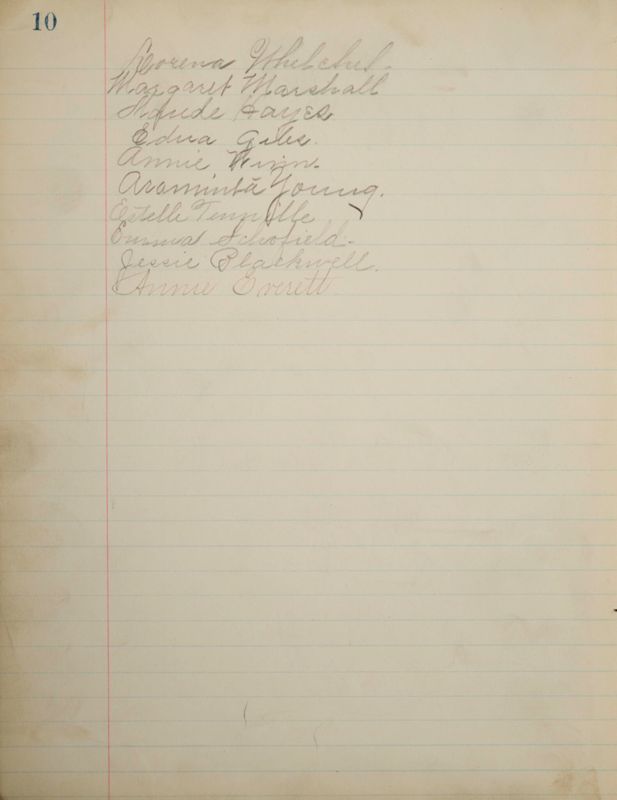 10
Lorena Whelchel.
Margaret Marshall
Maude Hayes
Edna Giles.
Annie Winn.
Araminta Young.
Estelle Tennille
Emma Schofield.
Jessie Blackwell.
Annie Everett